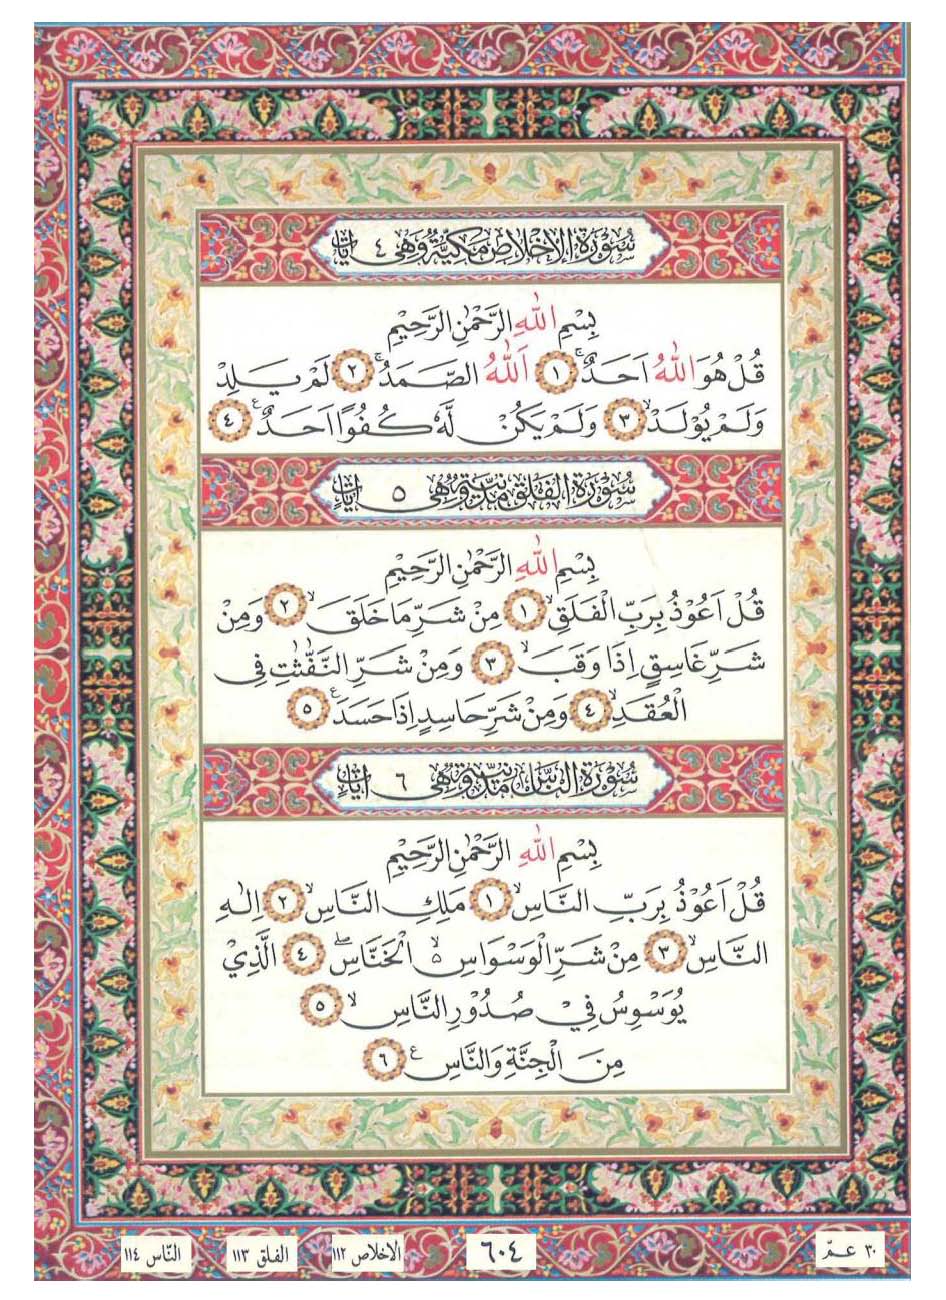 سُورَةُ الإخْلَاصِ مَكِّيَّةٌ وَهِيَ ٤ اٰيَاتٍ
بِسْمِ اللّٰهِ الرَّحْمٰنِ الرَّحِيْمِ
قُلْ هُوَ اللّٰهُ اَحَدٌ ۚ ١ اَللّٰهُ الصَّمَدُ ۚ ٢ لَمْ يَلِدْ
وَلَمْ يُوْلَدْ ۙ ٣ وَلَمْ يَكُنْ لَّهٗ كُفُوًا اَحَدٌ ࣖ ٤
سُورَةُ الفَلَقِ مَدَنِيَّةٌ وَهِيَ ٥ اٰيَاتٍ
بِسْمِ اللّٰهِ الرَّحْمٰنِ الرَّحِيْمِ
قُلْ اَعُوْذُ بِرَبِّ الْفَلَقِ ۙ ١ مِنْ شَرِّ مَا خَلَقَ ۙ ٢ وَمِنْ
شَرِّ غَاسِقٍ اِذَا وَقَبَ ۙ ٣ وَمِنْ شَرِّ النَّفّٰثٰتِ فِى
الْعُقَدِ ۙ ٤ وَمِنْ شَرِّ حَاسِدٍ اِذَا حَسَدَ ࣖ ٥
سُورَةُ النَّاسِ مَدَنِيَّةٌ وَهِيَ ٦ اٰيَاتٍ
بِسْمِ اللّٰهِ الرَّحْمٰنِ الرَّحِيْمِ
قُلْ اَعُوْذُ بِرَبِّ النَّاسِ ۙ ١ مَلِكِ النَّاسِ ۙ ٢ اِلٰهِ
النَّاسِ ۙ ٣ مِنْ شَرِّ الْوَسْوَاسِ ۵ۙ الْخَنَّاسِ ۖ ٤ الَّذِيْ
يُوَسْوِسُ فِيْ صُدُوْرِ النَّاسِ ۙ ٥
مِنَ الْجِنَّةِ وَالنَّاسِ ࣖ ٦
٣٠ عـمّ ٦٠٤ الاخلاص ١١٢ الفلق ١١٣ النّاس ١١٤